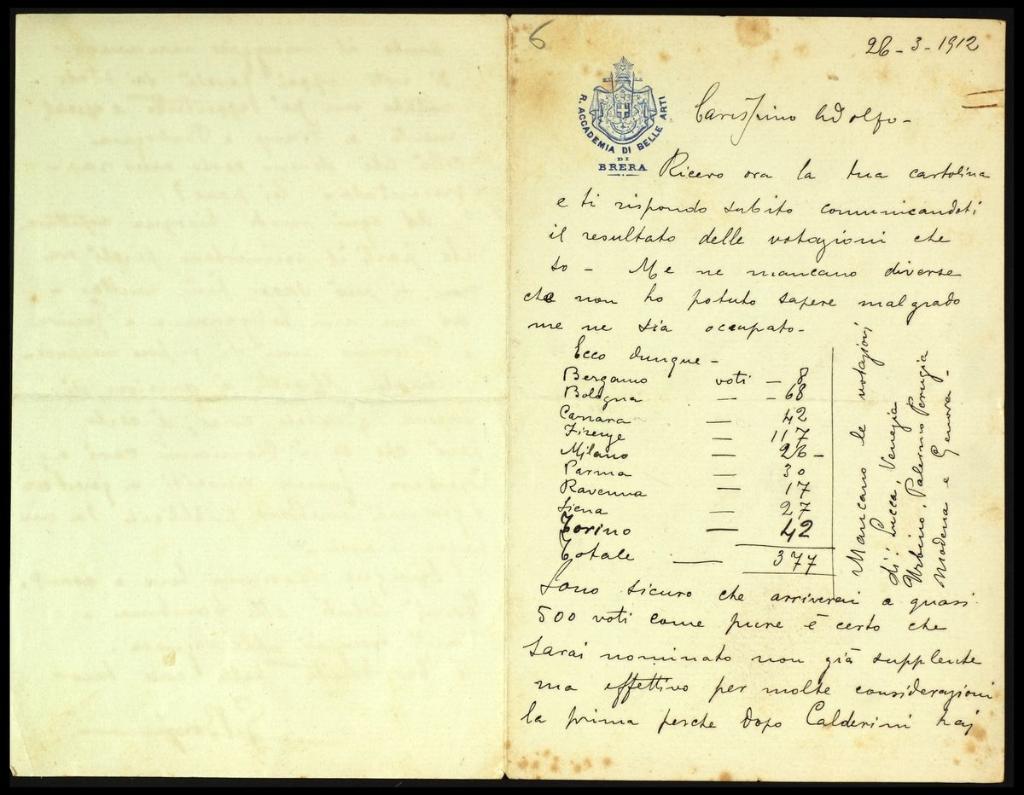 6
26-3-1912
R. ACCADEMIA DI BELLE ARTI
DI
BRERA
Carissimo Adolfo -
Ricevo ora la tua cartolina
e ti rispondo subito comunicandoti
il resultato delle votazioni che
so - Me ne mancano diverse
che non ho potuto sapere malgrado
me ne sia occupato -
Ecco dunque -
Bergamo voti - 8
Bologna — - 68
Carrara — 42
Firenze — 117
Milano — 26 -
Parma — 30
Ravenna — 17
Siena — 27
Torino — 42
Totale — 377
Mancano le votazioni
di Lucca, Venezia
Urbino, Palermo Perugia
Modena e Genova -
Sono sicuro che arriverai a quasi
500 voti come pure è certo che
sarai nominato non già supplente
ma effettivo per molte considerazioni
la prima perche dopo Calderini hai